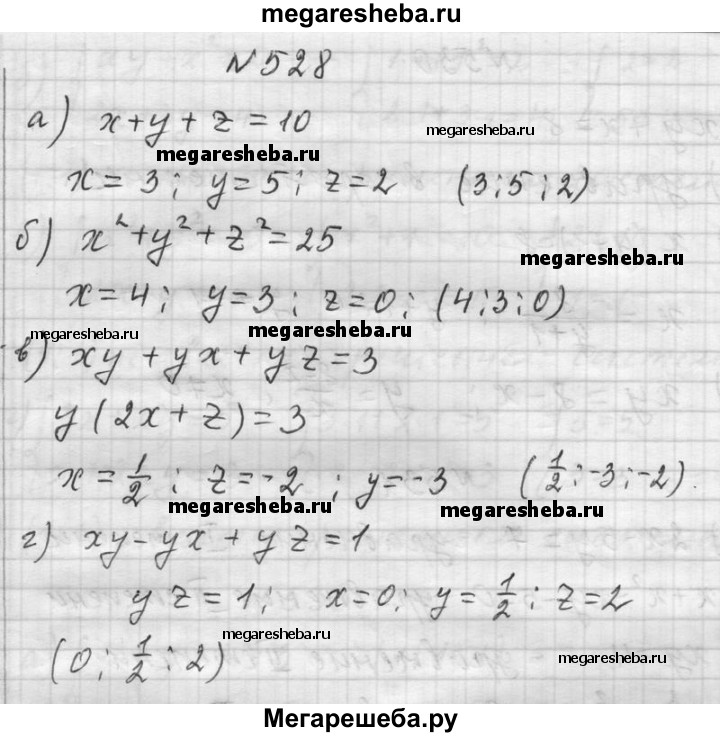 megaresheba.ru
N528
а) x+y+z=10
megaresheba.ru
megaresheba.ru
x=3; y=5; z=2 (3;5;2)
б) x²+y²+z²=25
megaresheba.ru
x=4; y=3; z=0; (4;3;0)
megaresheba.ru
megaresheba.ru
в) xy+yx+yz=3
y(2x+z)=3
x=1/2; z=-2; y=-3 (1/2;-3;-2).
megaresheba.ru
megaresheba.ru
г) xy-yx+yz=1
yz=1; x=0; y=1/2; z=2
megaresheba.ru
(0;1/2;2)
megaresheba.ru
Мегарешеба.ру